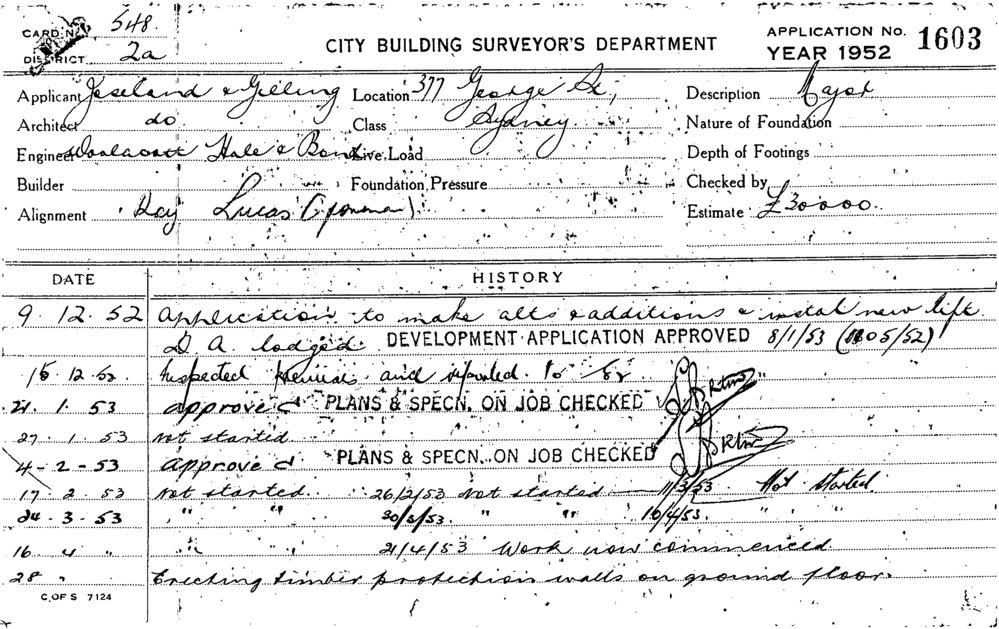 CARD No. 548.
DISTRICT 2a
CITY BUILDING SURVEYOR'S DEPARTMENT
APPLICATION No. 1603
YEAR 1952
Applicant Joseland & Gilling Location 377 George St, Description Major
Architect do Class Sydney Nature of Foundation
Engineer Woolacott Hale & Bond Live Load Depth of Footings
Builder Foundation Pressure Checked by
Alignment Ray Lucas (foreman). Estimate £30000.
DATE HISTORY
9. 12. 52 Application to make alts & additions & instal new lift.
D. A. lodged. DEVELOPMENT APPLICATION APPROVED 8/1/53 (1105/52)
15. 12. 52 Inspected Premises and reported to
21. 1. 53 approved PLANS & SPECN. ON JOB CHECKED
27. 1. 53 not started
4-2-53 approved PLANS & SPECN. ON JOB CHECKED
17. 2. 53 not started. 26/2/53 not started 11/3/53 Not Started
24. 3. 53 " " 30/3/53. " " 10/4/53. " "
16 4 " " " 21/4/53 Work now commenced.
28 " Erecting timber protection walls on ground floor.
C. OF S 7124